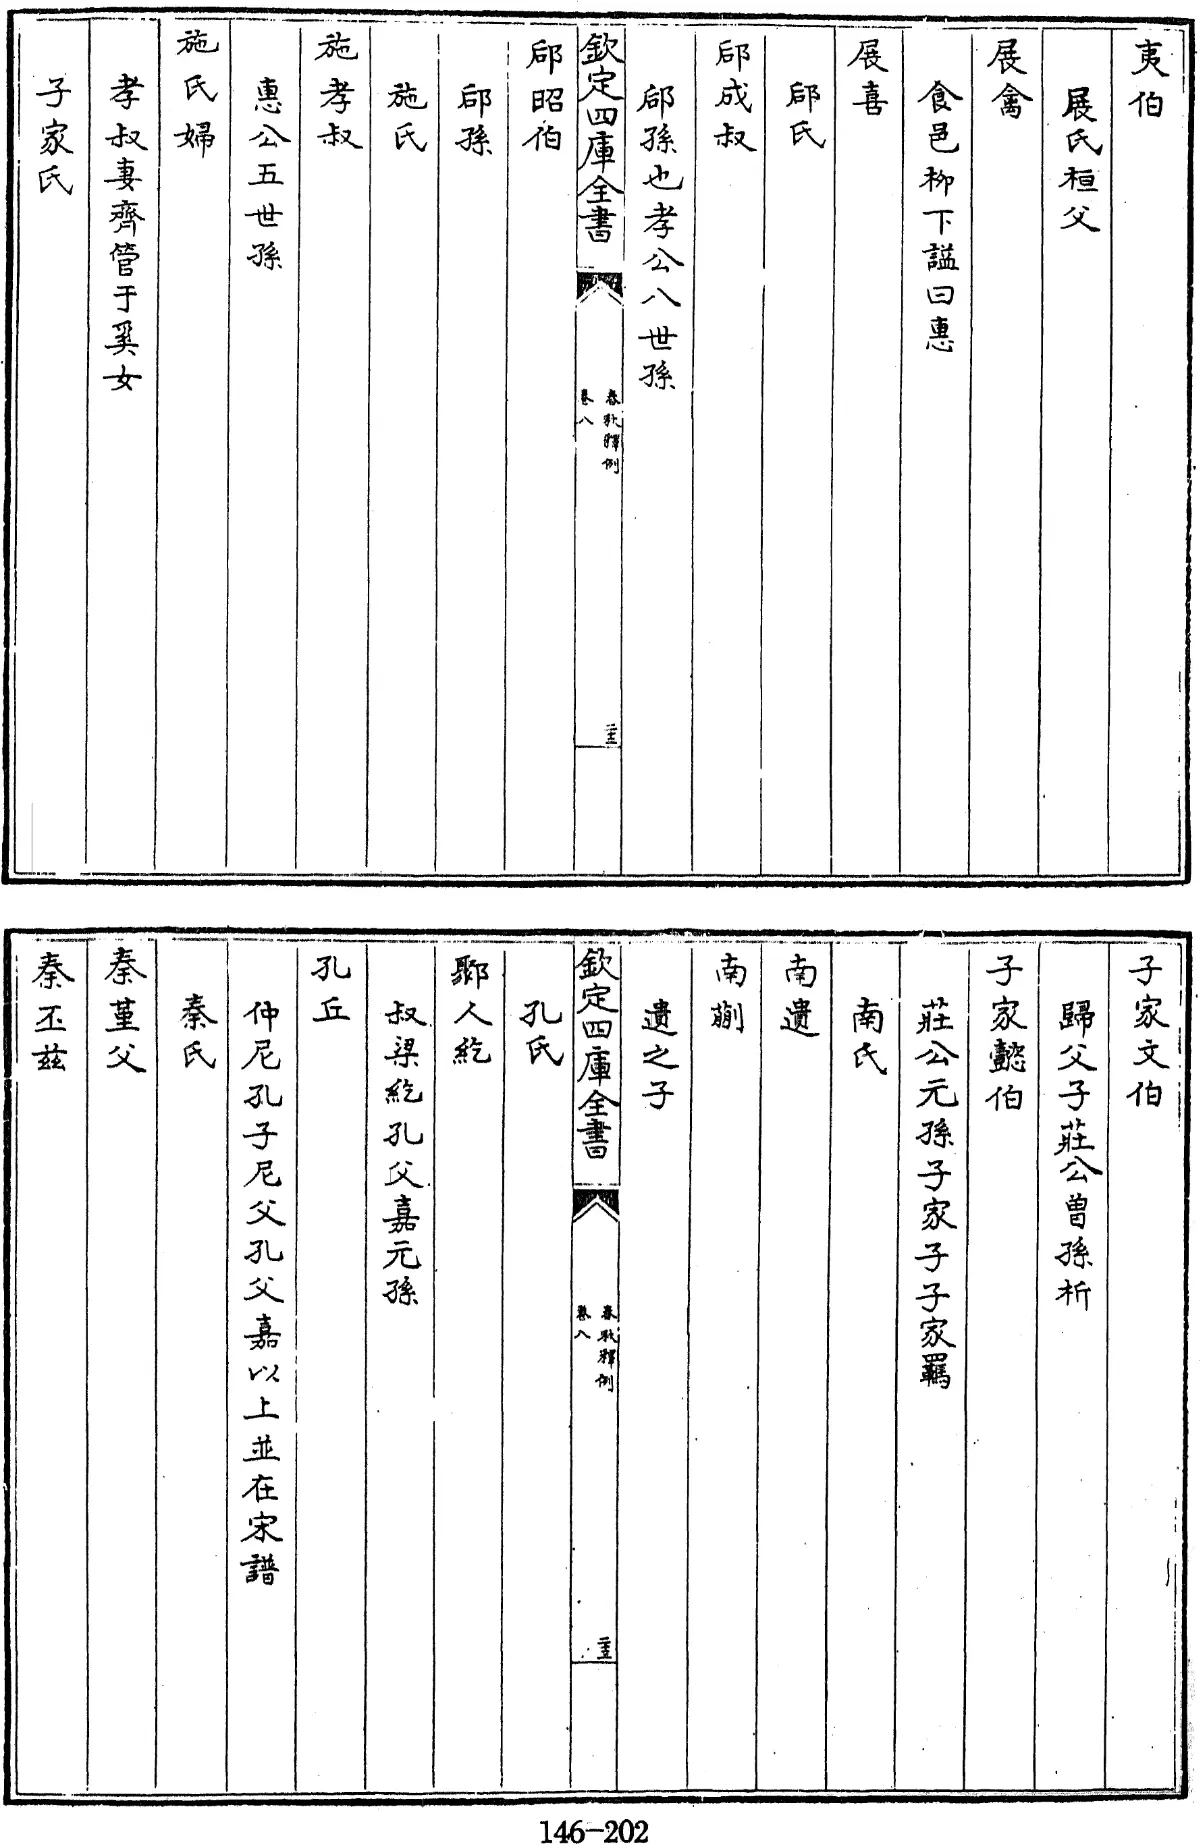 夷伯
展氏桓父
展禽
食邑柳下諡曰惠
展喜
郈氏
郈成叔
郈孫也孝公八世孫
欽定四庫全書
春秋釋例
卷八
郈昭伯
郈孫
施氏
施孝叔
惠公五世孫
施氏婦
孝叔妻齊管于奚女
子家氏
子家文伯
歸父子莊公曾孫析
子家懿伯
莊公元孫子家子子家羈
南氏
南遺
南蒯
遺之子
欽定四庫全書
春秋釋例
卷八
孔氏
郰人紇
叔梁紇孔父嘉元孫
孔丘
仲尼孔子尼父孔父嘉以上並在宋譜
秦氏
秦堇父
秦丕茲
146-202